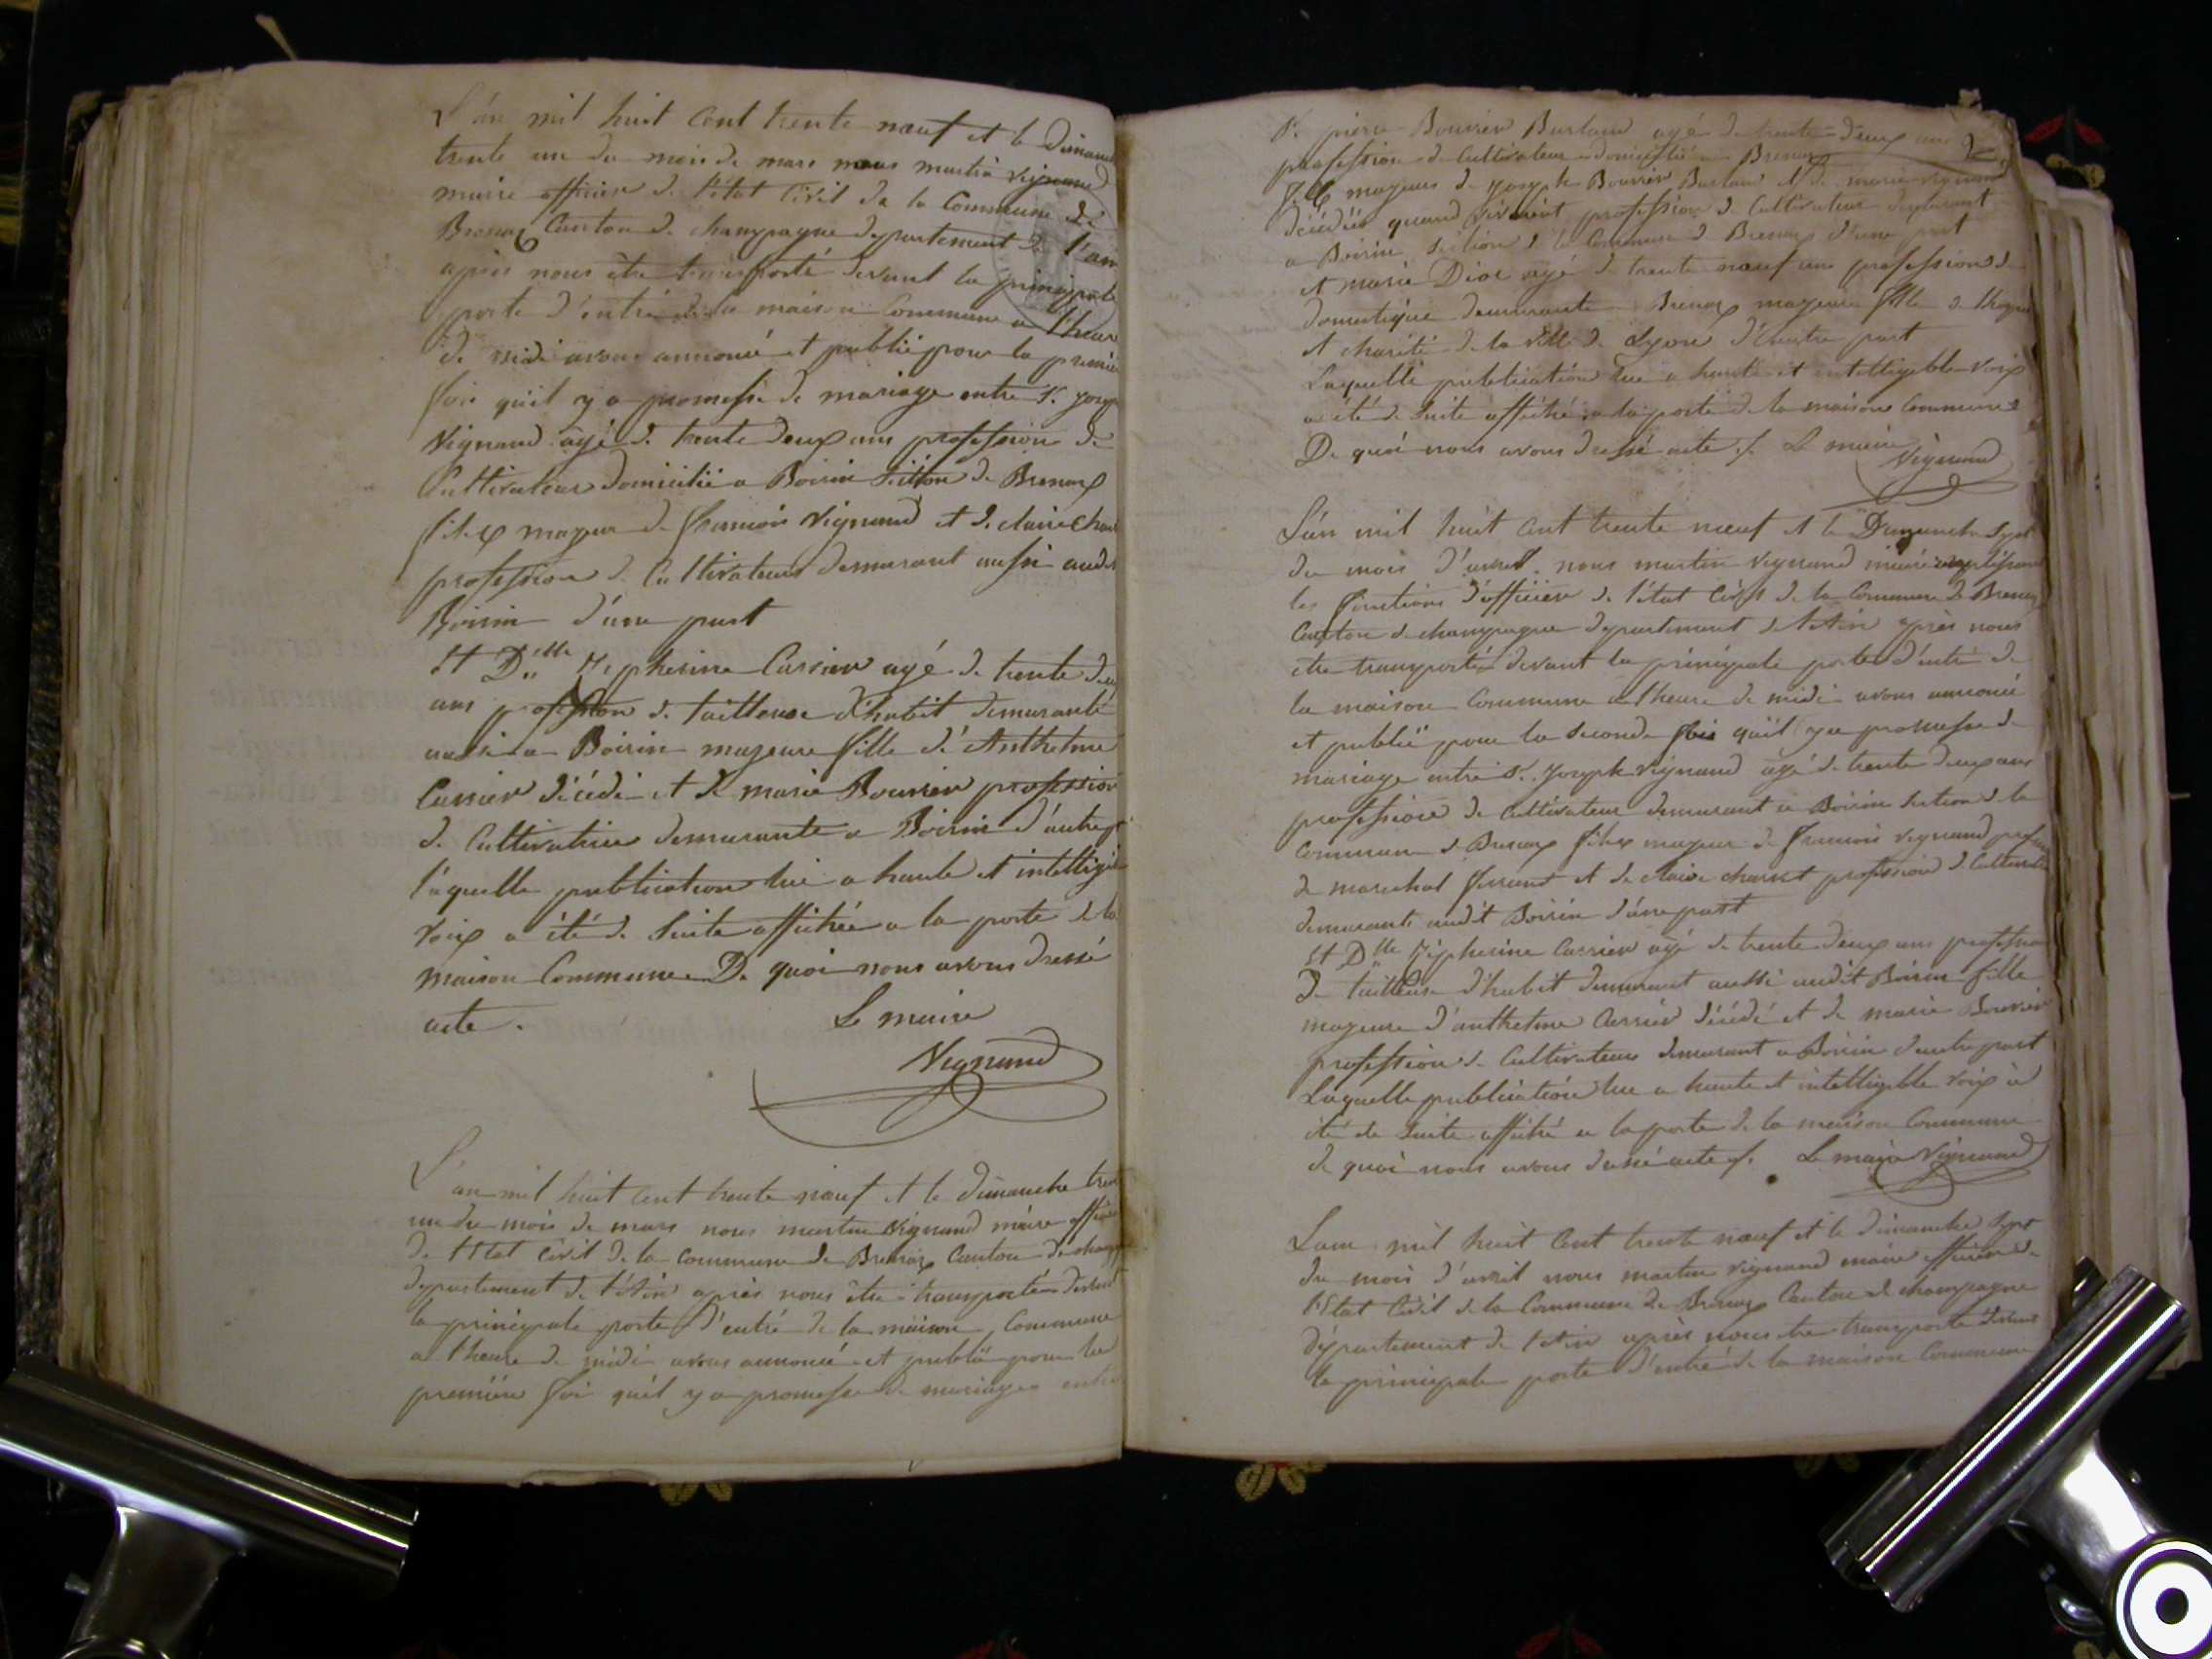 L'an mil huit Cent trente neuf et le Dimanche
trente un du mois de mars nous martin vignand
maire officier de l'état Civil de la Commune de
Brenaz Canton de champagne departement de l'ain
après nous être transporté devant la principale
porte d'entré de la maison Commune a l'heure
de midi avons annoncé et publié pour la premiere
fois qu'il y a promesse de mariage entre S. joseph
Vignand agé de trente Deux ans profession de
Cultivateur domicilié a Boirin Section de Brenaz
fils majeur de francois Vignand et de claire
profession de Cultivateurs demeurant aussi audit
Boirin d'une part
Et Dlle Zepherine Carrier agé de trente deux
ans profession de tailleuse d'habit demeurante
aussi a Boirin majeure fille d'Anthelme
Carrier décédé et de marie Bouvier profession
de Cultivatrice demeurante a Boirin d'autre pt
laquelle publication lue a haute et intelligible
voix a été de Suite affichée a la porte de la
maison Commune De quoi nous avons dressé
acte. Le maire
Vignand
L'an mil huit Cent trente neuf et le dimanche trente
un du mois de mars nous martin Vignand maire officier
de l'Etat Civil de la Commune de Brenaz Canton de champagne
departement de l'Ain après nous être transporté devant
la principale porte d'entré de la maison Commune
a l'heure de midi avons annoncé et publié pour la
première fois qu'il y a promesse de mariage entre
S. piere Bouvier agé de trente deux ans
profession de Cultivateur domicilié a Brenaz
fils majeur de joseph Bouvier et de marie vignand
décédés quand vivaient profession de Cultivateur
a Boirin Section de la Commune de Brenaz d'une part
et marie agé de trente neuf ans profession de
domestique demeurante a Brenaz majeure fille de
et charité de la ville de Lyon d'autre part
Laquelle publication lue a haute et intelligible voix
a été de Suite affiché a la porte de la maison Commune
De quoi nous avons dressé acte /. Le maire
Vignand
L'an mil huit Cent trente neuf et le Dimanche Sept
du mois d'avril nous martin vignand maire remplissant
les fonctions d'officier de l'état Civil de la Commune de Brenaz
Canton de champagne departement de l'Ain après nous
etre transporté devant la principale porte d'entré de
la maison Commune a l'heure de midi avons annoncé
et publié pour la Seconde fois qu'il y a promesse de
mariage entre S. Joseph Vignand agé de trente deux ans
profession de Cultivateur demeurant a Boirin Section de la
Commune de Brenaz fils majeur de francois vignand profession
de marechal ferrand et de claire profession de Cultivatrice
demeurants audit Boirin d'une part
Et Dlle Zépherine Carrier agé de trente deux ans profession
De tailleuse d'habit demeurant aussi audit Boirin fille
majeure d'anthelme Carrier décédé et de marie Bouvier
profession de Cultivateur demeurant a Boirin d'autre part
Laquelle publication lue a haute et intelligible voix a
été de Suite affiché a la porte de la maison Commune
de quoi nous avons dressé acte /. Le maire Vignand
L'an mil huit Cent trente neuf et le dimanche Sept
du mois d'avril nous martin vignand maire officier de
l'Etat Civil de la Commune de Brenaz Canton de champagne
département de l'Ain après nous etre transporté devant
la principale porte d'entré de la maison Commune